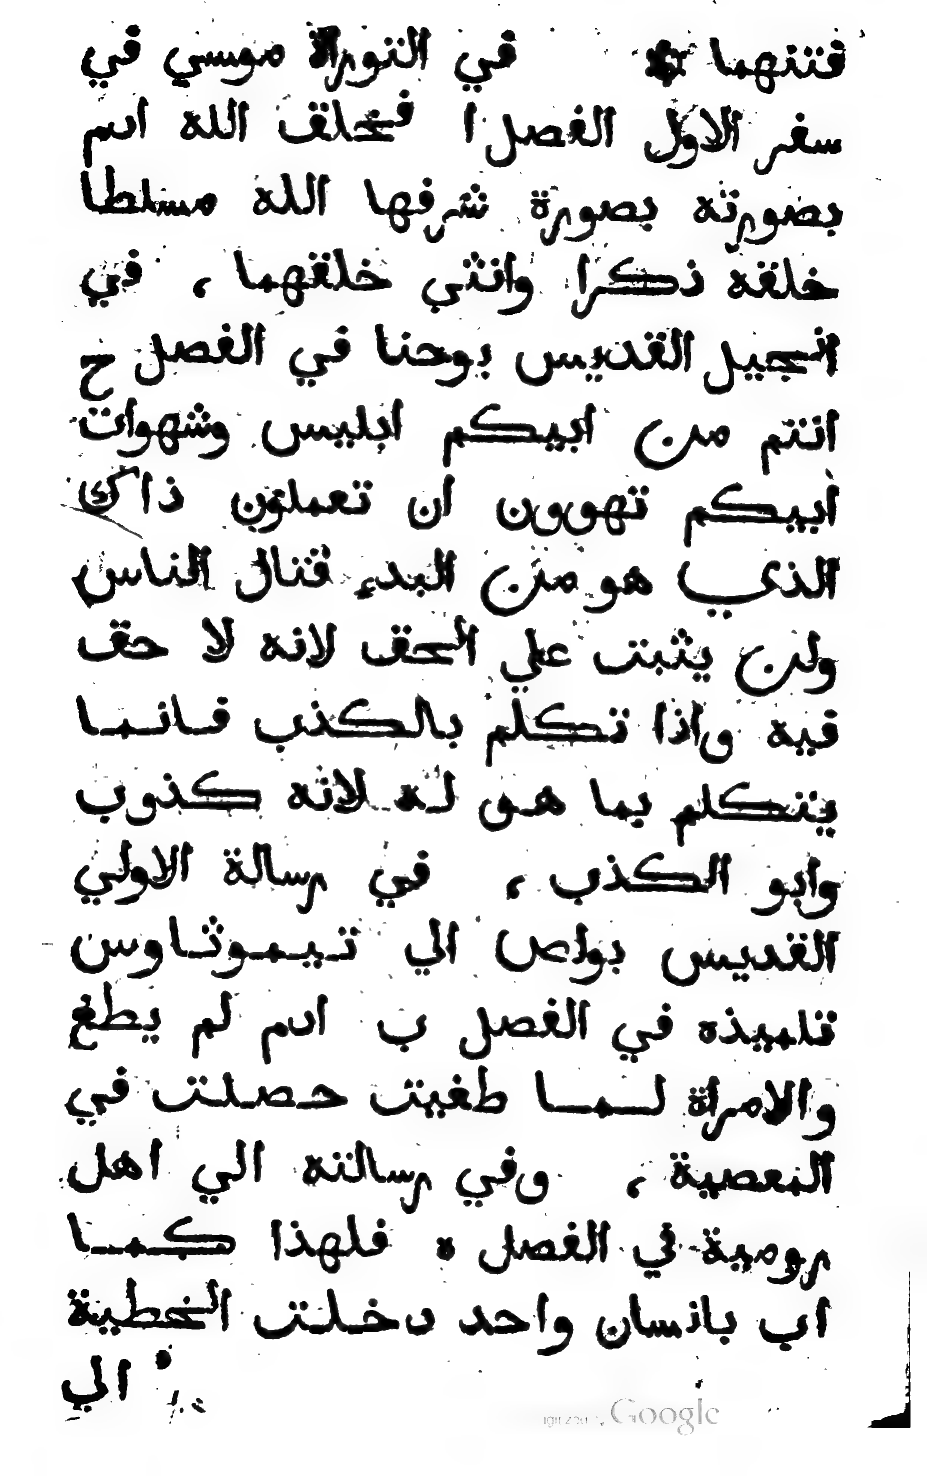 فتنهما * في التوراة موسي في
سفر الاول الفصل ا فخلق الله ادم
بصورته بصورة شرفها الله مسلطا
خلقه ذكرا وانثي خلقهما ، في
انجيل القديس يوحنا في الفصل ح
انتم من ابيكم ابليس وشهوات
ابيكم تهوون ان تعملون ذاك
الذي هو من البدء قتال الناس
ولن يثبت علي الحق لانه لا حق
فيه واذا تكلم بالكذب فانما
يتكلم بما هو له لانه كذوب
وابو الكذب ، في رسالة الاولي
القديس بولص الي تيموثاوس
تلميذه في الفصل ب ادم لم يطغ
والامراة لما طغيت حصلت في
المعصية ، وفي رسالته الي اهل
رومية في الفصل ه فلهذا كما
اب بانسان واحد دخلت الخطية
الي
Google